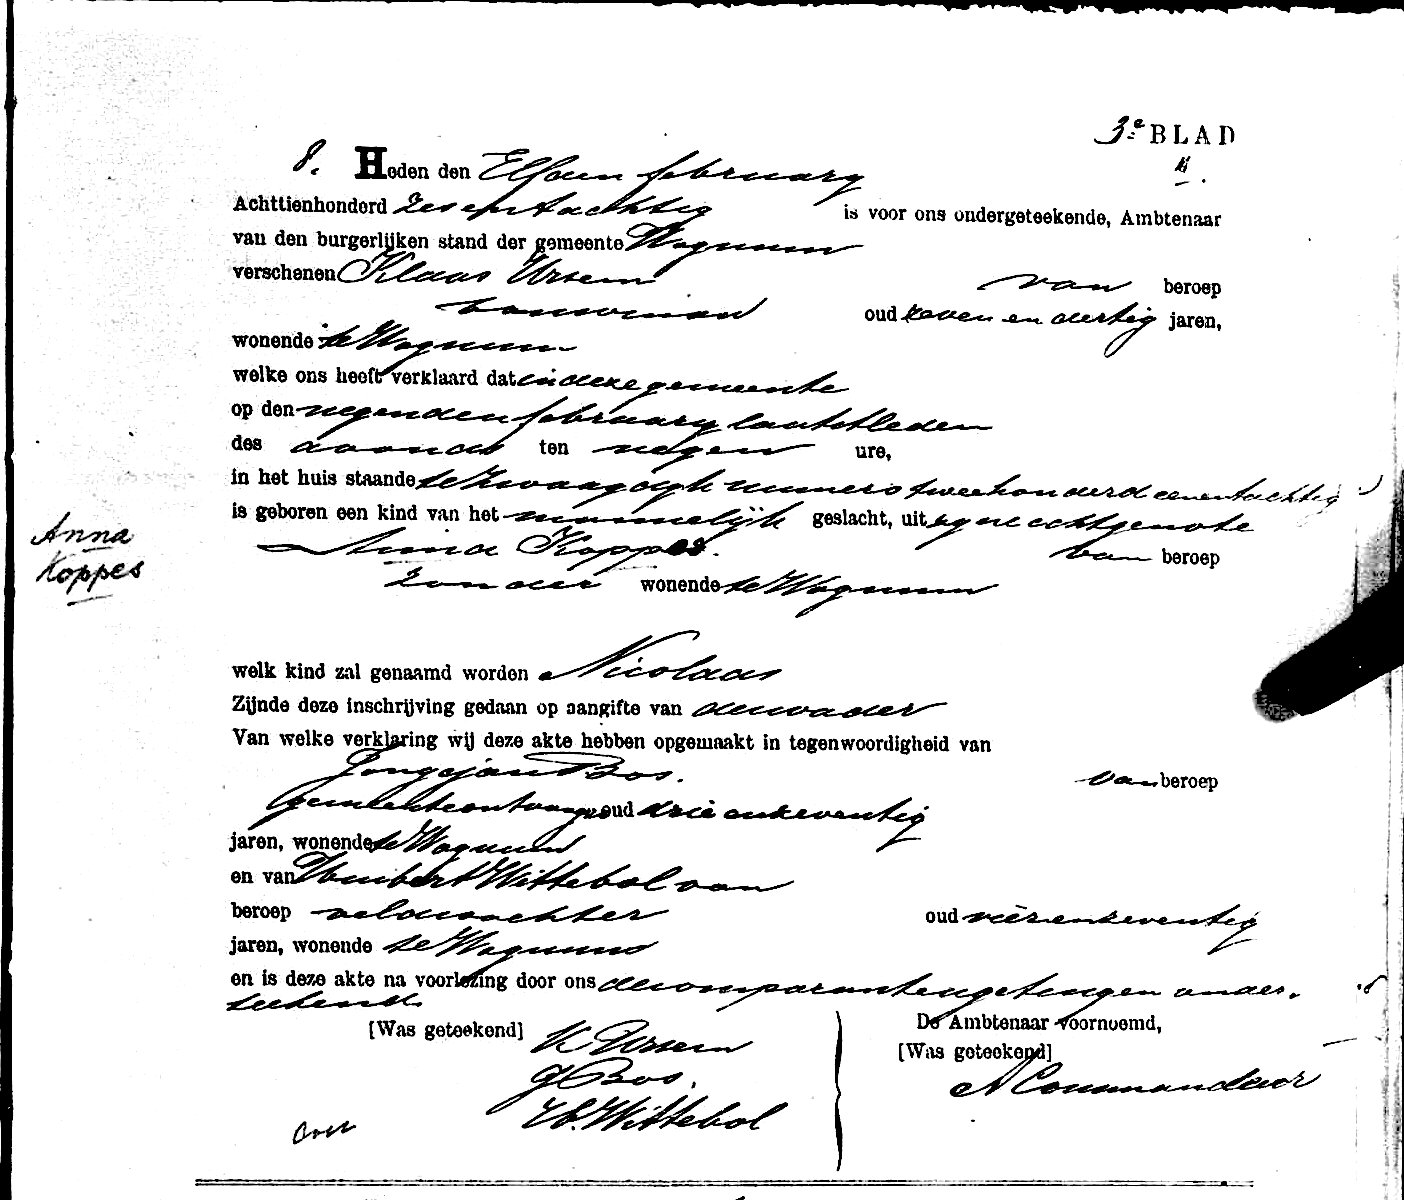 3e BLAD
8. Heden den Elfden february
Achttienhonderd zesentachtig is voor ons ondergeteekende, Ambtenaar
van den burgerlijken stand der gemeente Wognum
verschenen Klaas Ursem van beroep
bouwman oud zeven en dertig jaren,
wonende te Wognum
welke ons heeft verklaard dat in deze gemeente
op den negenden february laatstleden
des avonds ten negen ure,
in het huis staande te Zwaagdijk numero tweehonderd eenentachtig
is geboren een kind van het mannelijk geslacht, uit zijne echtgenote
Anna Koppes. van beroep
zonder wonende te Wognum
Anna
Koppes
welk kind zal genaamd worden Nicolaas
Zijnde deze inschrijving gedaan op aangifte van den vader
Van welke verklaring wij deze akte hebben opgemaakt in tegenwoordigheid van
Jongejan Bos. van beroep
gemeenteontvanger oud drie enzeventig
jaren, wonende te Wognum
en van Huibert Wittebol van
beroep veldwachter oud vierenzeventig
jaren, wonende te Wognum
en is deze akte na voorlezing door ons de comparant en getuigen onder-
teekend.
[Was geteekend] K Ursem
J Bos.
H. Wittebol
De Ambtenaar voornoemd,
[Was geteekend]
A Commandeur